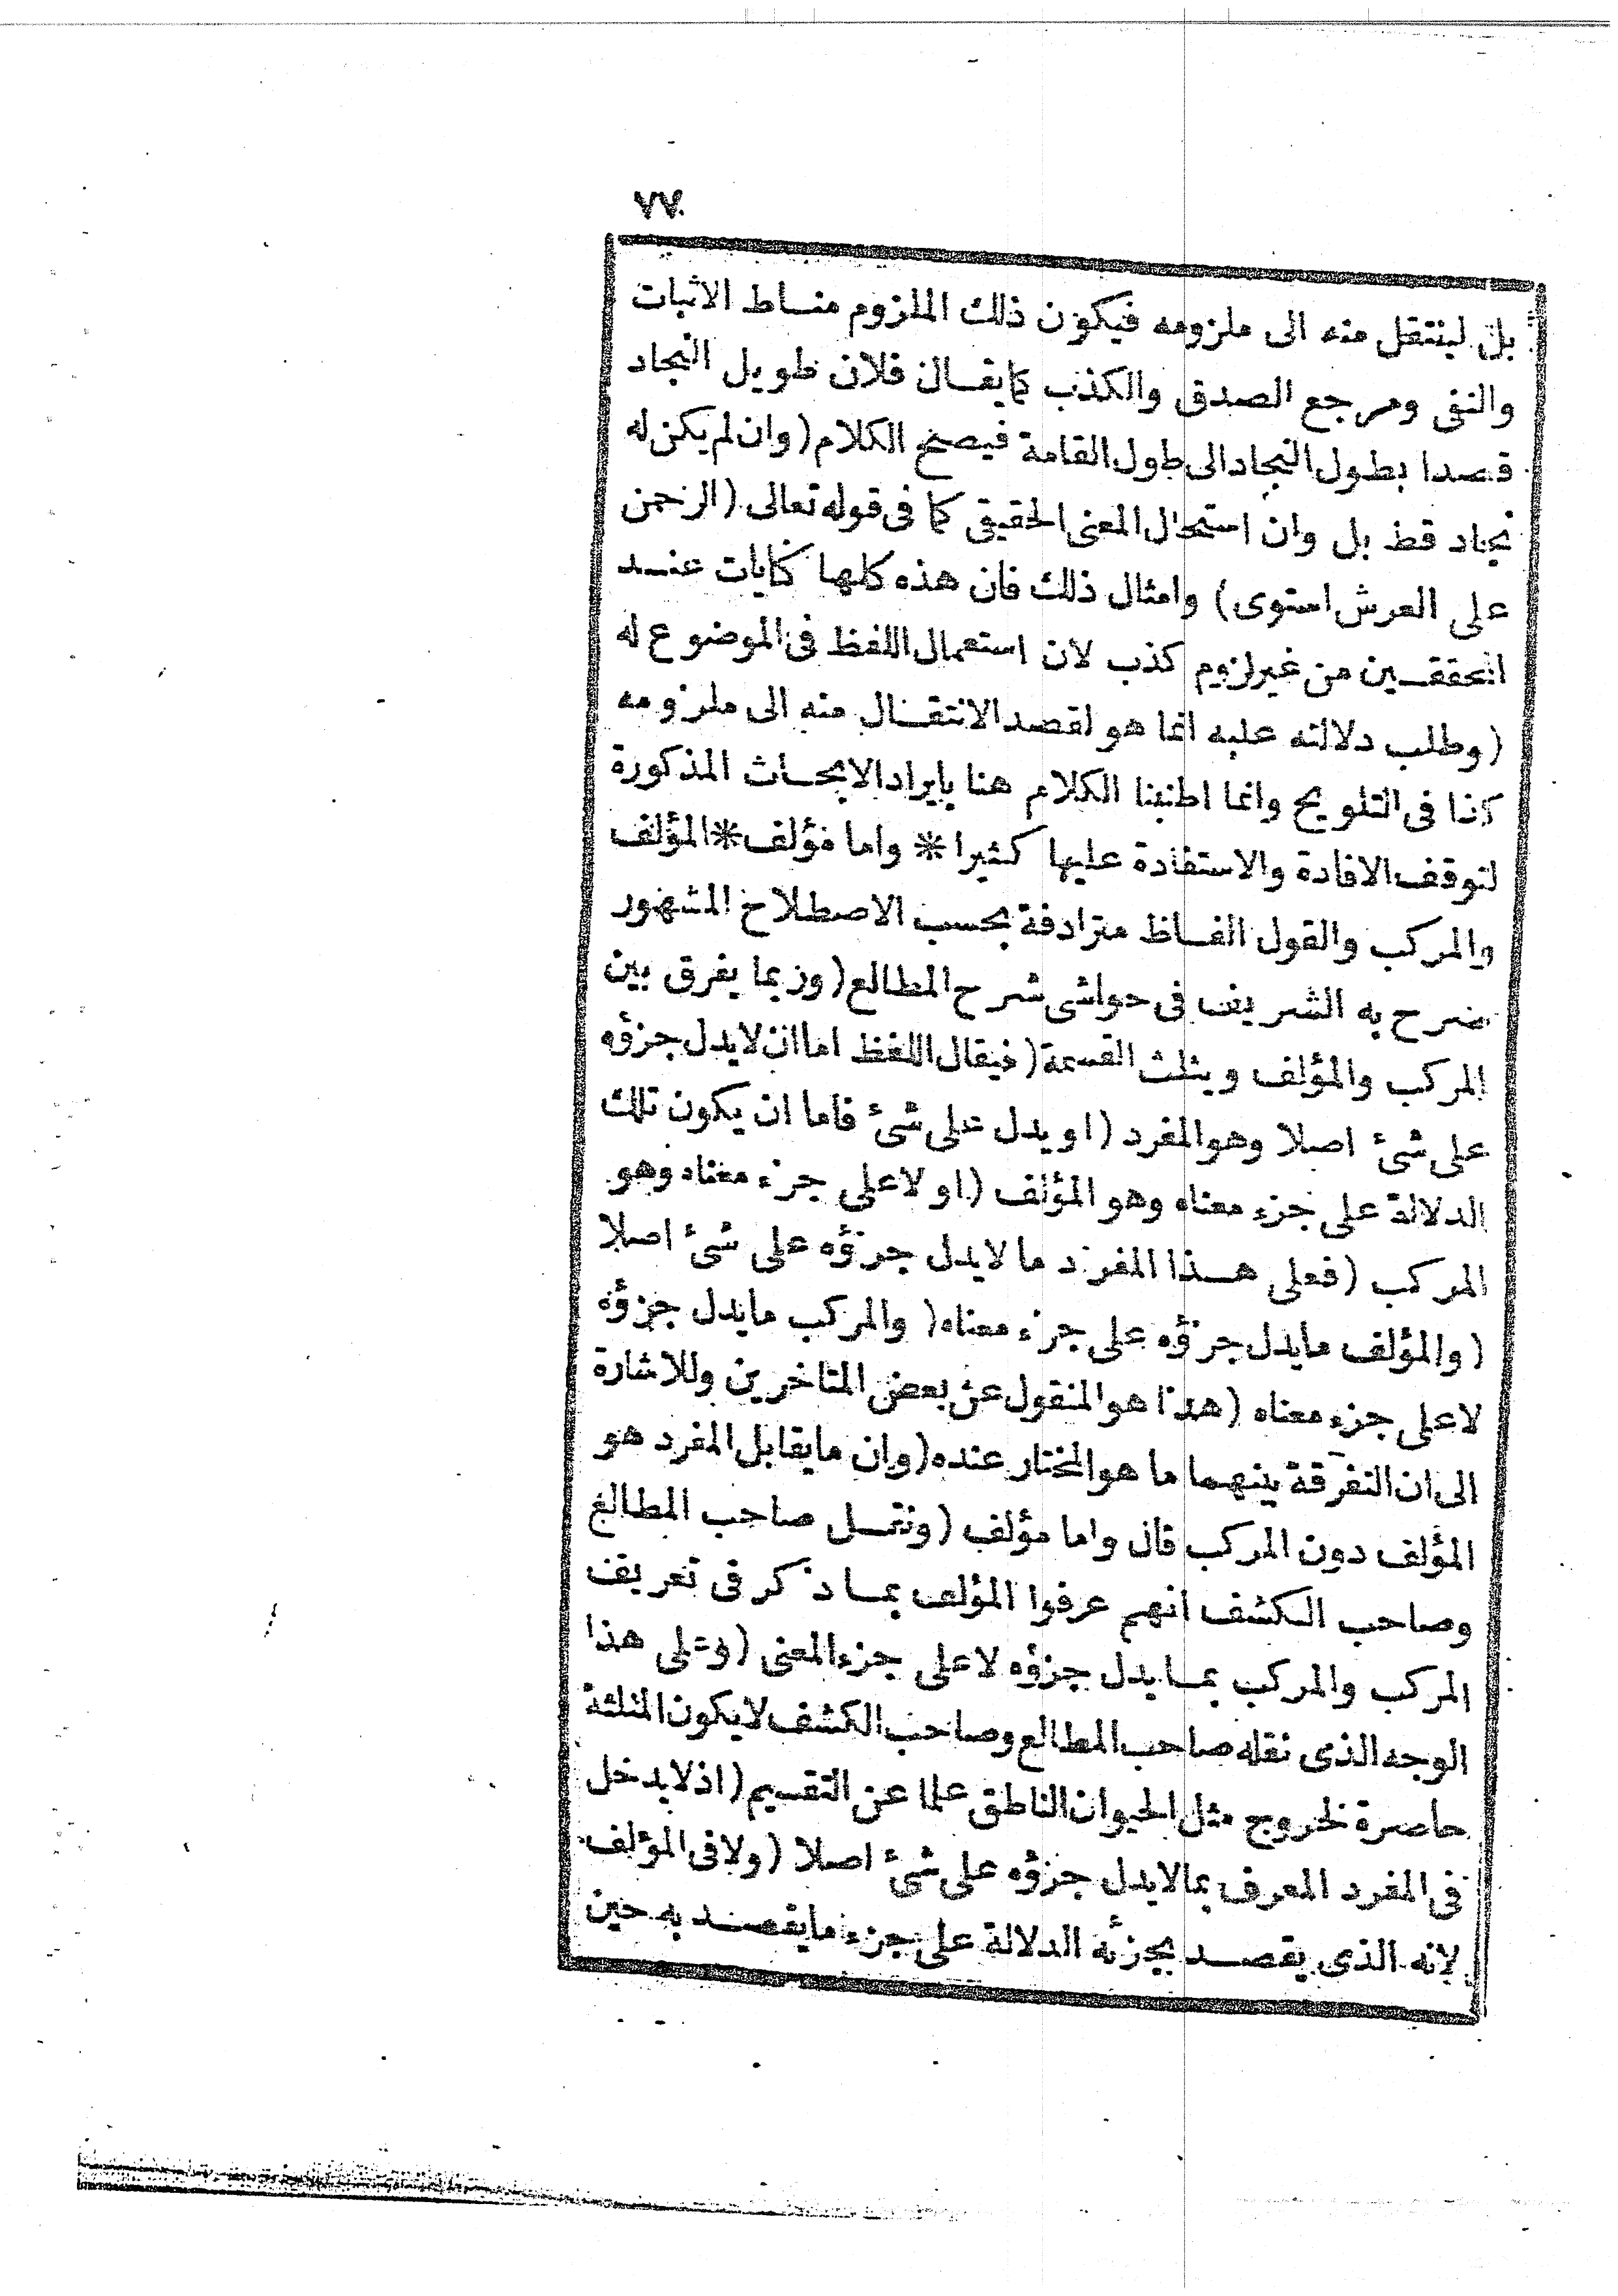 ٧٧
بل لينتقل منه الى ملزومه فيكون ذلك الملزوم منـاط الاثبات
والنفى ومرجع الصدق والكذب كايقـال فلان طويل النجاد
قصدا بطول النجاد الى طول القامة فيصح الكلام (وان لم يكن له
نجاد قط بل وان استحال المعنى الحقيقى كا فى قوله تعالى (الرحمن
على العرش استوى) وامثال ذلك فان هذه كلها كنايات عنـد
المحققـين من غير لزوم كذب لان استعمال اللفظ فى الموضوع له
(وطلب دلالته عليه انما هو لقصد الانتقـال منه الى ملزومه
كذا فى التلويح وانما اطنبنا الكلام هنا بايراد الابحـاث المذكورة
لتوقف الافادة والاستفادة عليها كثيرا * واما مؤلف * المؤلف
والمركب والقول الفـاظ مترادفة بحسب الاصطلاح المشهور
صرح به الشريف فى حواشى شرح المطالع (وربما يفرق بين
المركب والمؤلف ويثلث القسمة (فيقال اللفظ اما ان لايدل جزؤه
على شئ اصلا وهو المفرد (او يدل على شئ فاما ان يكون تلك
الدلالة على جزء معناه وهو المؤلف (او لا على جزء معناه وهو
المركب (فعلى هـذا المفرد ما لايدل جزؤه على شئ اصلا
(والمؤلف مايدل جزؤه على جزء معناه (والمركب مايدل جزؤه
لا على جزء معناه (هذا هو المنقول عن بعض المتاخرين وللاشارة
الى ان التفرقة بينهما ما هو المختار عنده (وان مايقابل المفرد هو
المؤلف دون المركب قال واما مؤلف (ونقـل صاحب المطالع
وصاحب الكشف انهم عرفوا المؤلف بمـا ذكر فى تعريف
المركب والمركب بمـا يدل جزؤه لا على جزء المعنى (وعلى هذا
الوجه الذى نقله صاحب المطالع وصاحب الكشف لايكون المثلثة
حاصرة لخروج مثل الحيوان الناطق علما عن التقسيم (اذ لايدخل
فى المفرد المعرف بمالايدل جزؤه على شئ اصلا (ولا فى المؤلف
لانه الذى يقصـد بجزئه الدلالة على جزء مايقصـد به حين